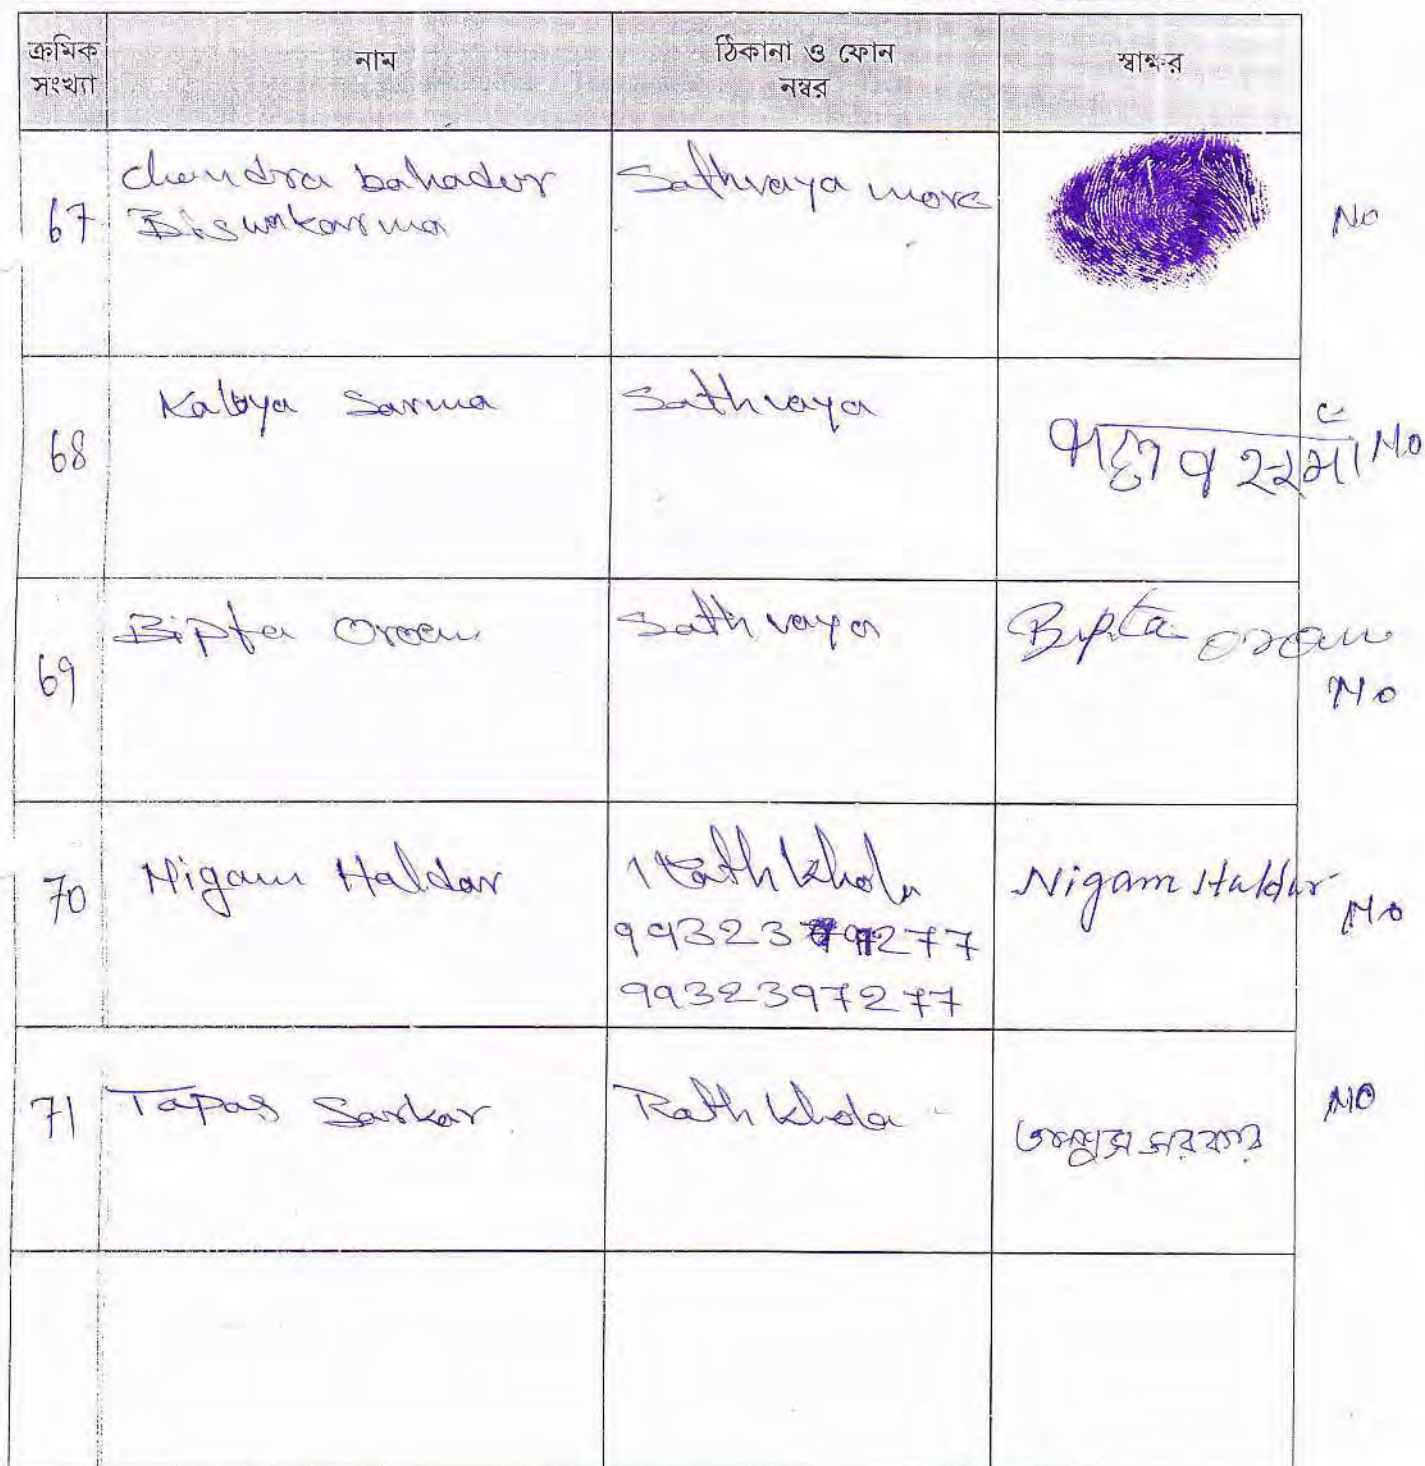 ক্রমিক সংখ্যা নাম ঠিকানা ও ফোন নম্বর স্বাক্ষর
67 Chandra bahadur Biswakarma Sathvaya more NO
68 Kalbya Sarma Sathvaya NO
69 Bipta Oroen Sathvaya Bipta oraon NO
70 Nigam Haldar Rathkhola Nigam Haldar NO
9932397277
71 Tapas Sarkar Rathkhola তাপস সরকার NO